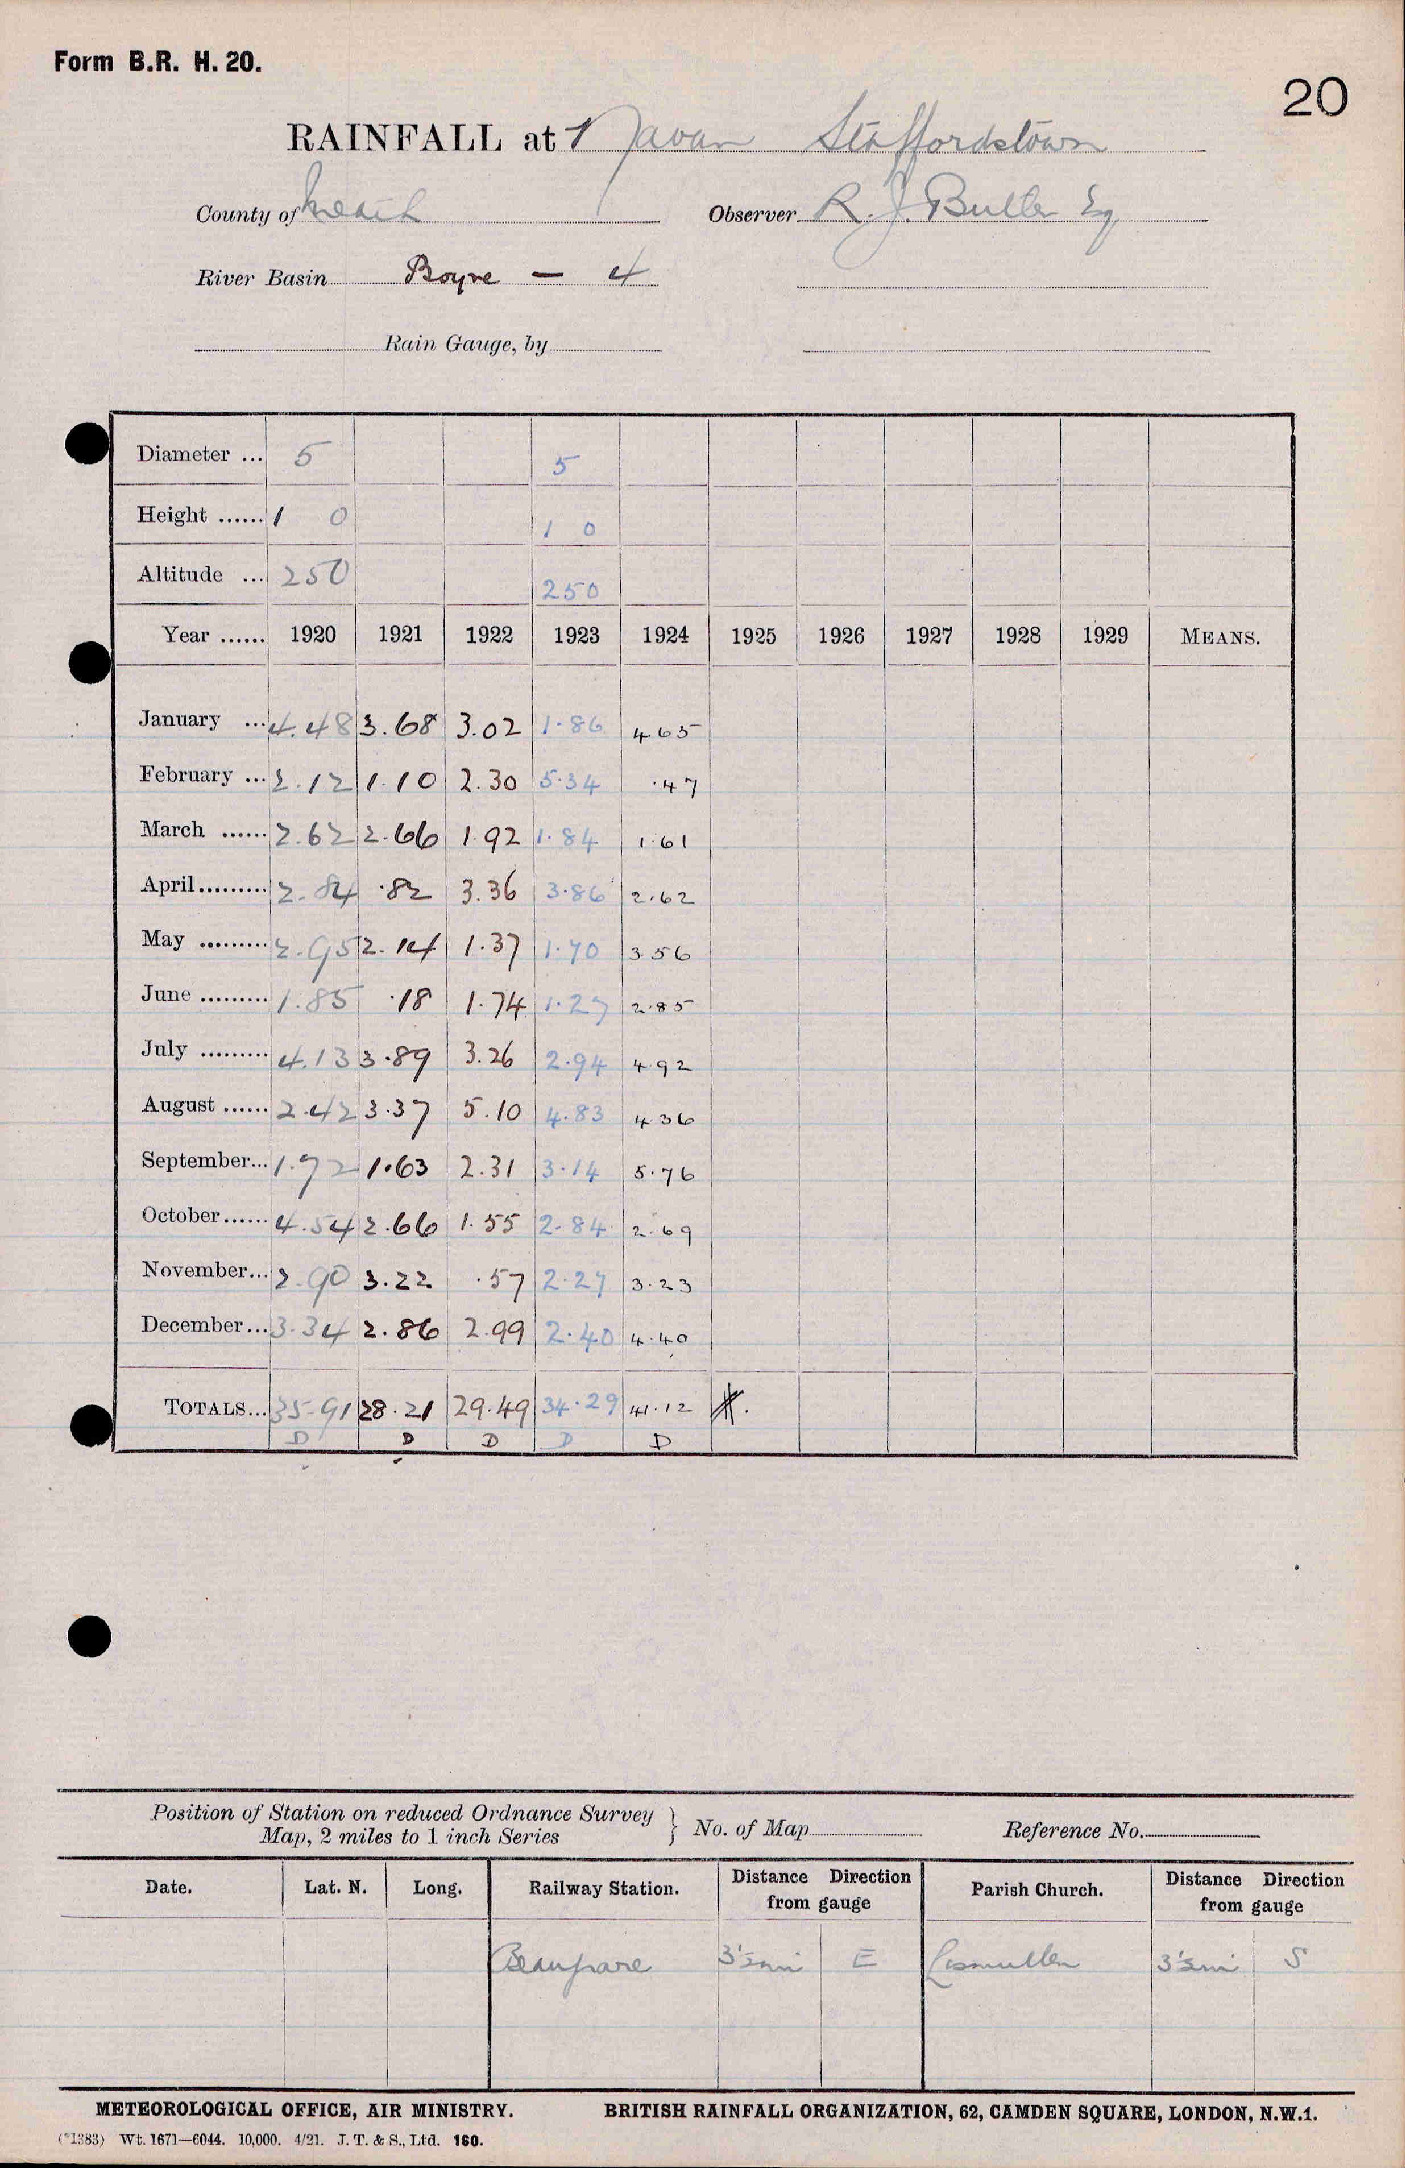 Form B.R. H. 20.
20
RAINFALL at Navan Staffordstown
County of Meath Observer R. J. Butler Esq
River Basin Boyne — 4
Rain Gauge, by
Diameter ... 5 5
Height ...... 1 0 1 0
Altitude ... 250 250
Year ...... 1920 1921 1922 1923 1924 1925 1926 1927 1928 1929 MEANS.
January ... 4.48 3.68 3.02 1.86 4 65
February ... 2.12 1.10 2.30 5.34 .47
March ...... 2.62 2.66 1.92 1.84 1.61
April......... 2.84 .82 3.36 3.86 2.62
May ......... 2.95 2.14 1.37 1.70 3 56
June ......... 1.85 .18 1.74 1.27 2.85
July ......... 4.13 3.89 3.26 2.94 4.92
August ...... 2.42 3.37 5.10 4.83 4 36
September... 1.72 1.63 2.31 3.14 5.76
October...... 4.54 2.66 1.55 2.84 2.69
November... 2.90 3.22 .57 2.27 3.23
December... 3.34 2.86 2.99 2.40 4.40
TOTALS... 35.91 28.21 29.49 34.29 41.12
D D D D D
Position of Station on reduced Ordnance Survey
Map, 2 miles to 1 inch Series } No. of Map Reference No.
Date. Lat. N. Long. Railway Station. Distance Direction from gauge Parish Church. Distance Direction from gauge
Beauparc 3½ mi E Lismullen 3½ mi S
METEOROLOGICAL OFFICE, AIR MINISTRY. BRITISH RAINFALL ORGANIZATION, 62, CAMDEN SQUARE, LONDON, N.W.1.
(*1383) Wt. 1671—6044. 10,000. 4/21. J. T. & S., Ltd. 160.